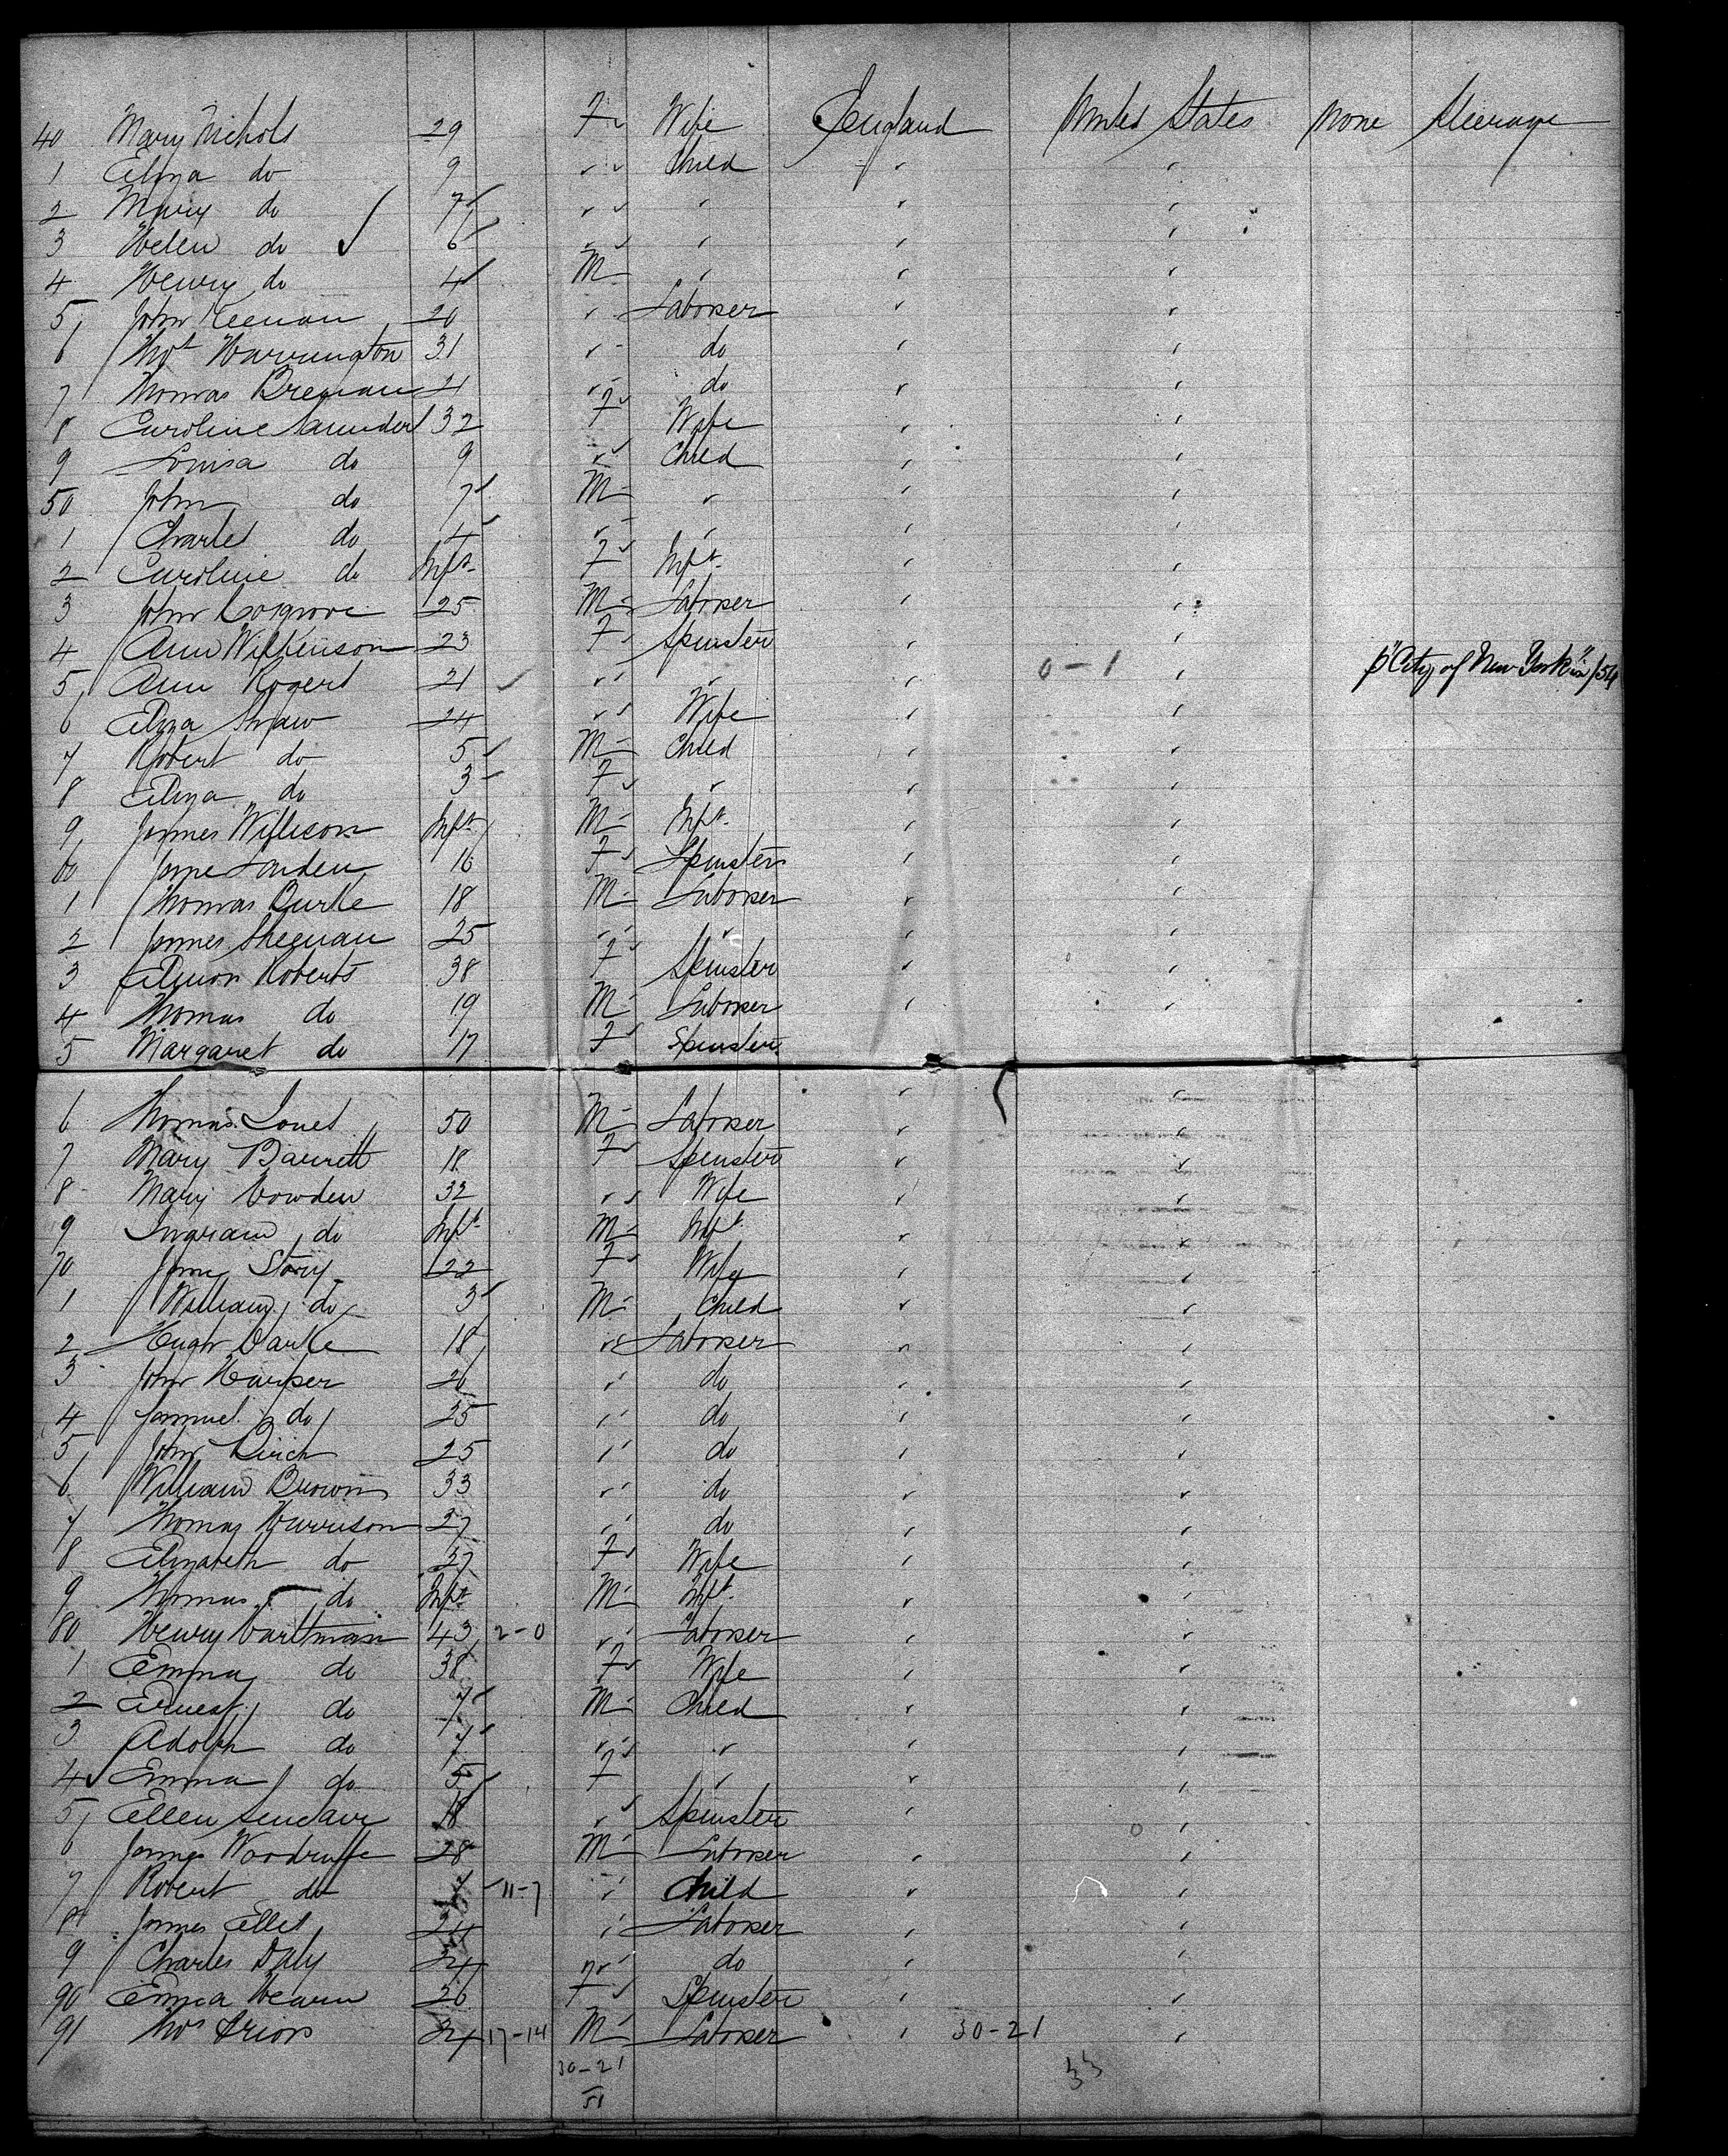 40 Mary Nichols 29 F Wife England United States None Steerage
1 Eliza do 9 " Child " "
2 Mary do 7 " " " "
3 Helen do 6 " " " "
4 Henry do 4 M " " "
5 John Keenan 20 " Laborer " "
6 Thos Harrington 31 " do " "
7 Thomas Brennan 21 " do " "
8 Caroline Saunders 32 F Wife " "
9 Louisa do 9 " Child " "
50 John do 7 M " " "
1 Charles do 4 " " " "
2 Caroline do Inft F Inft " "
3 John Cosgrove 25 M Laborer " "
4 Ann Wilkinson 23 F Spinster " "
5 Ann Rogers 21 " " " 0-1 " p "City of New York" 2/54
6 Eliza Shaw 24 " Wife " "
7 Robert do 5 M Child " "
8 Eliza do 3 F " " "
9 James Willison Inft M Inft " "
60 Jane 16 F Spinster " "
1 Thomas Burke 18 M Laborer " "
2 James Sheenan 25 " " " "
3 Roberts 38 F Spinster " "
4 Thomas do 19 M Laborer " "
5 Margaret do 17 F Spinster " "
6 Thomas Jones 50 M Laborer " "
7 Mary Barrett 18 F Spinster " "
8 Mary Cowden 32 " Wife " "
9 Ingram do Inft M Inft " "
70 Jane Story 22 F Wife " "
1 William do 3 M Child " "
2 Hugh 18 " Laborer " "
3 John Harper 20 " do " "
4 Samuel do 25 " do " "
5 John Birch 25 " do " "
6 William Brown 33 " do " "
7 Thomas Harrison 27 " do " "
8 Elizabeth do 27 F Wife " "
9 Thomas do Inft M Inft " "
80 Henry Hartman 43 2-0 " Laborer " "
1 Emma do 38 F Wife " "
2 Ernest do 7 M Child " "
3 Adolph do 7 " " " "
4 Emma do 5 F " " "
5 Ellen Sinclair 18 " Spinster " "
6 James Woodruffe 28 M Laborer " "
7 Robert do 11-7 " Child " "
8 James Elles 24 " Laborer " "
9 Charles Daly 24 " do " "
90 Emma Hearn 26 F Spinster " "
91 Thos 24 17-14 M Laborer " 30-21 "
30-21
51
33